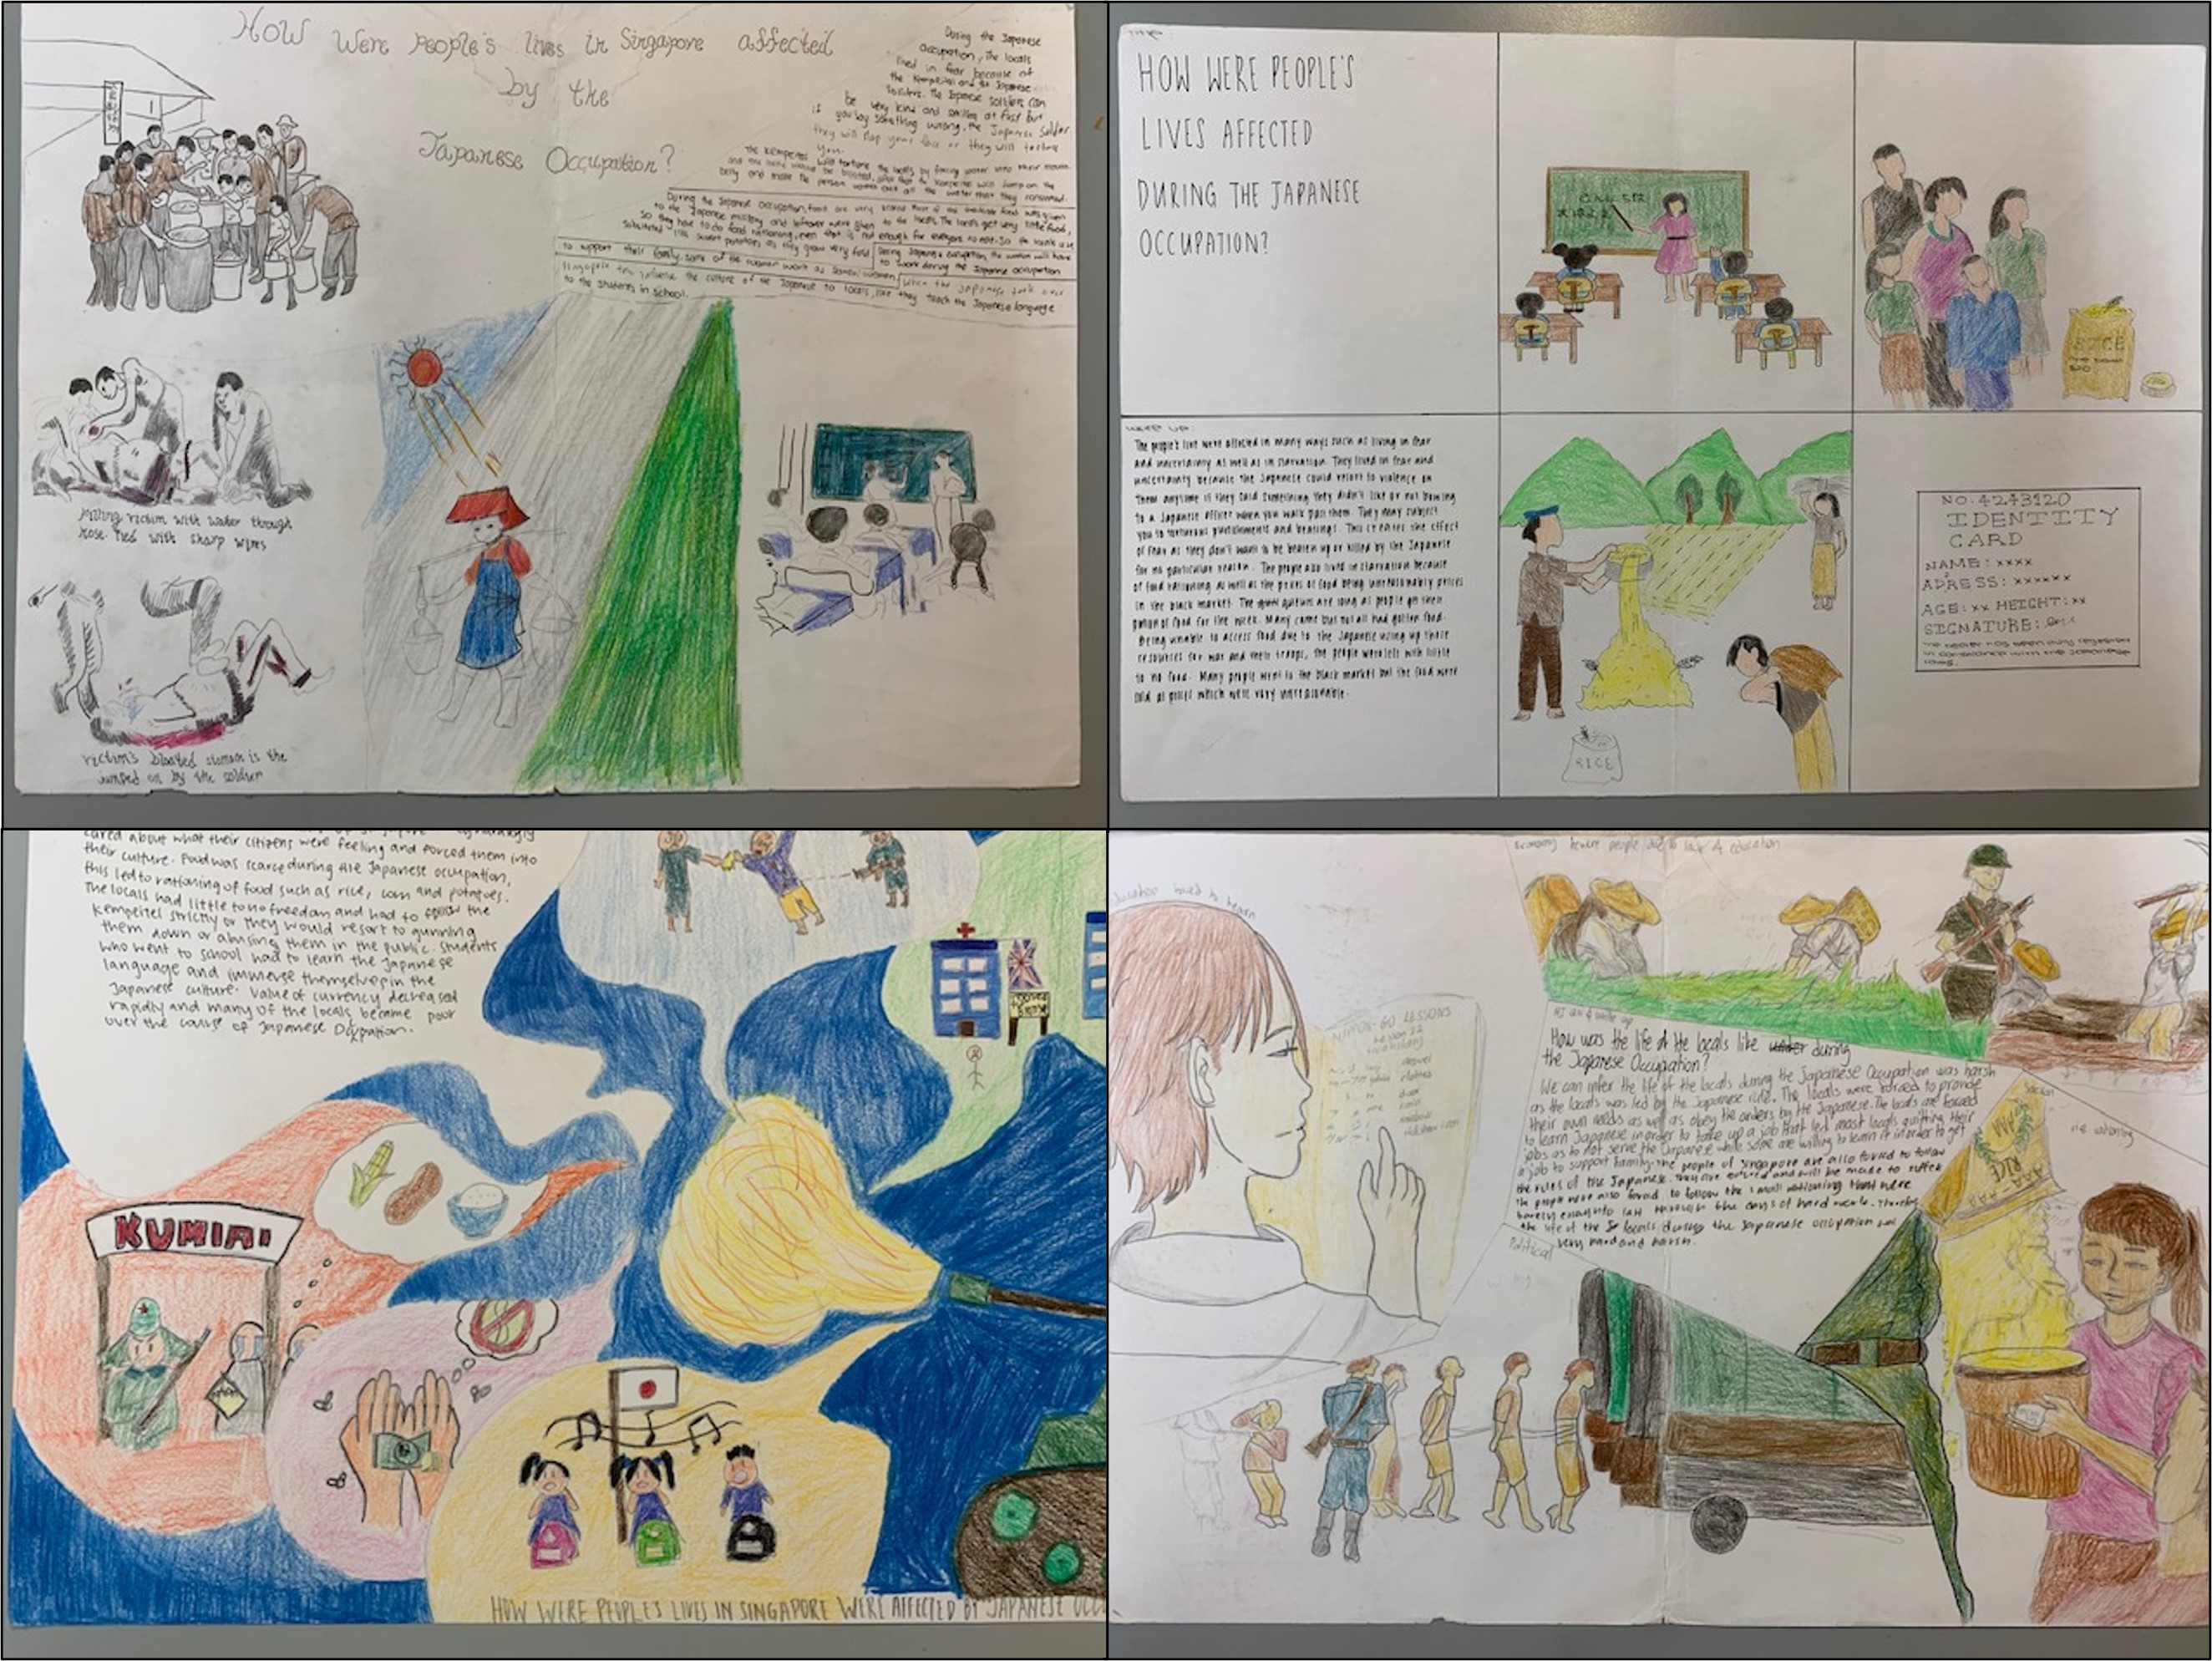 How Were People's lives in Singapore affected
by the
Japanese Occupation?
During the Japanese
occupation, the locals
lived in fear because of
the Kempeitai and the Japanese
Soldiers. The Japanese soldiers can
be very kind and smiling at first but
if you say something wrong, the Japanese Soldier
they will slap your face or they will torture
you.
The Kempeitai will torture the locals by forcing water into their mouth
and the belly would be bloated, after that the Kempeitai will jump on the
belly and make the person vomit out all the water that they consumed.
During the Japanese Occupation, food are very scarce. Most of the food was given
to the Japanese military and leftover were given to the locals. The locals get very little food,
So they have to do food rationing, even that is not enough for everyone to eat. So the locals use
substitutes like sweet potatoes as they grow very fast
During Japanese occupation, the women will have
to work during the Japanese occupation
to support their family. Some of the women work as Samsui women
When the Japanese took over
Singapore they influence the culture of the Japanese to locals, like they teach the Japanese language
to the students in school.
killing victim with water through
hose. Tied with sharp wires
victim's bloated stomach is the
jumped on by the soldier
HOW WERE PEOPLE'S
LIVES AFFECTED
DURING THE JAPANESE
OCCUPATION?
RICE
WRITE UP:
The people's live were affected in many ways such as living in fear
and uncertainty as well as in starvation. They lived in fear and
uncertainty because the Japanese could resort to violence on
them anytime if they said something they didn't like or not bowing
to a Japanese officer when you walk past them. They may subject
you to torturous punishments and beatings. This creates the effect
of fear as they don't want to be beaten up or killed by the Japanese
for no particular reason. The people also lived in starvation because
of food rationing as well as the prices of food being unreasonably prices
in the black market. The queues are long as people get their
portion of food for the week. Many came but not all had gotten food.
Being unable to access food due to the Japanese using up those
resources for war and their troops, the people were left with little
to no food. Many people went to the black market but the food were
sold at prices which were very unreasonable.
RICE
NO. 4243120
IDENTITY
CARD
NAME: xxxx
ADRESS: xxxxxx
AGE: xx HEIGHT: xx
SIGNATURE:
cared about what their citizens were feeling and forced them into
their culture. Food was scarce during the Japanese occupation,
this led to rationing of food such as rice, corn and potatoes.
The locals had little to no freedom and had to follow the
Kempeitei strictly or they would resort to gunning
them down or abusing them in the public. Students
who went to school had to learn the Japanese
language and immerse themselves in the
Japanese culture. Value of currency decreased
rapidly and many of the locals became poor
over the course of Japanese Occpation.
KUMIAI
HOW WERE PEOPLE'S LIVES IN SINGAPORE WERE AFFECTED BY JAPANESE
NIPPON-GO LESSONS
How was the life of the locals like under during
the Japanese Occupation?
We can infer the life of the locals during the Japanese Occupation was harsh
as the locals was led by the Japanese rule. The locals were forced to provide
their own needs as well as obey the orders by the Japanese. The locals are forced
to learn Japanese in order to take up a job that led most locals quitting their
jobs as to not serve the Japanese while some are willing to learn it in order to get
a job to support family. The people of Singapore are also forced to follow
the rules of the Japanese. They are forced and will be made to suffer
The people were also forced to follow the small rationing that were
barely enough to last through the days of hard work. Thereby
the life of the locals during the Japanese occupation was
very hard and harsh.
Political
RICE